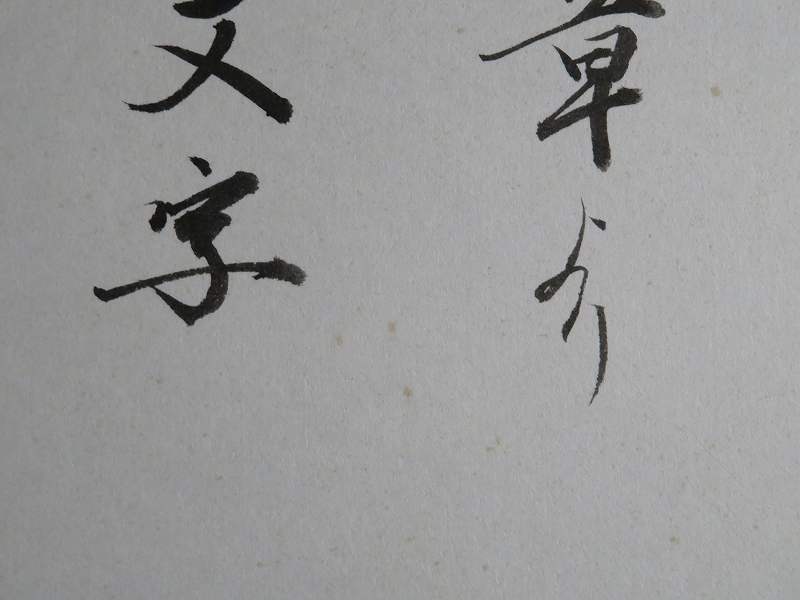 章より
文字